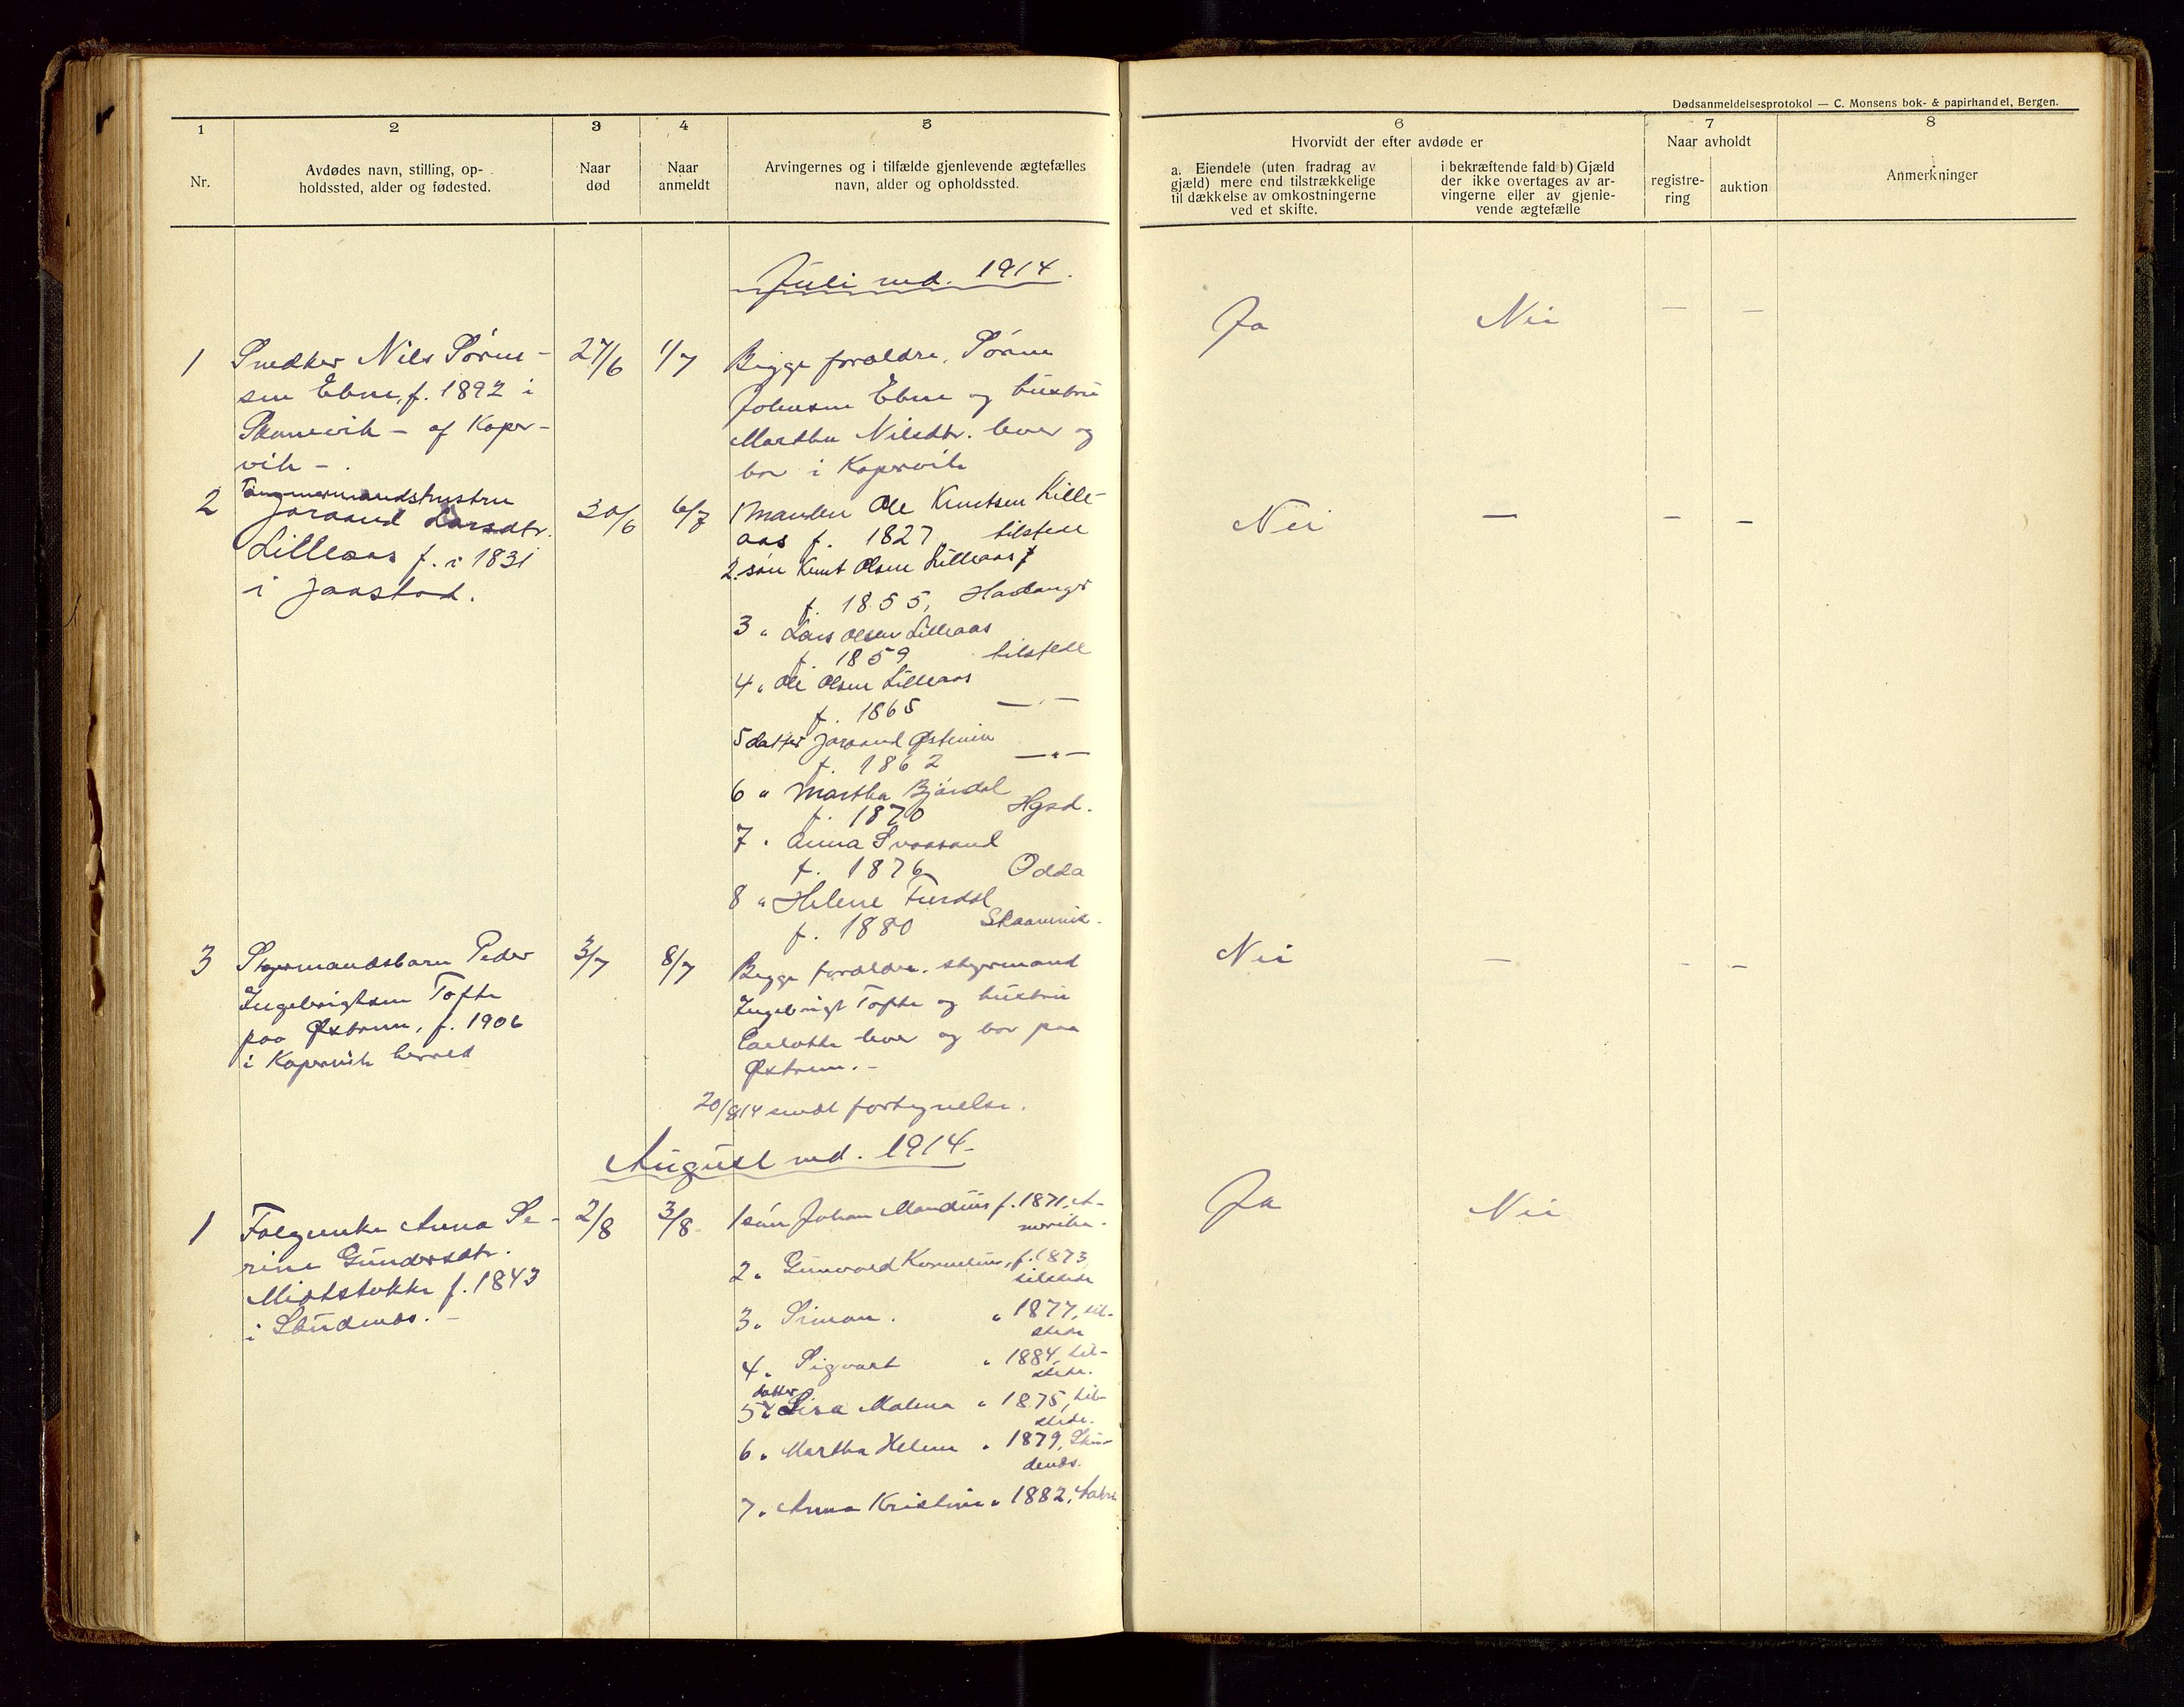 Dødsanmeldelsesprotokol — C. Monsens bok- & papirhandel, Bergen.
1
2
3
4
5
6
7
8
Nr.
Avdødes navn, stilling, op-
holdssted, alder og fødested.
Naar
død
Naar
anmeldt
Arvingernes og i tilfælde gjenlevende ægtefælles
navn, alder og opholdssted.
Hvorvidt der efter avdøde er
a. Eiendele (uten fradrag av
gjæld) mere end tilstrækkelige
til dækkelse av omkostningerne
ved et skifte.
i bekræftende fald b) Gjæld
der ikke overtages av ar-
vingerne eller av gjenle-
vende ægtefælle
Naar avholdt
registre-
ring
auktion
Anmerkninger
Juli md. 1914.
1
Snedker Nils Søren-
sen Ebne, f. 1892 i
Skånevik - af Koper-
vik - .
27/6
1/7
Begge forældre, Søren
Johnsen Ebne og hustru
Martha Nilsdtr. lever og
bor i Kopervik
Ja
Nei
— —
2
Tømmermandshustru
Joraand Larsdtr.
Lilleaas f. i 1831
i Jaastad.
30/6
6/7
1 Manden Ole Knutsen Lille-
aas f. 1827 tilstede
2. søn Knut Olsen Lilleaas
f. 1855, Hardanger
3 " Lars Olsen Lilleaas
f. 1859 tilstede
4 " Ole Olsen Lilleaas
f. 1865 — " —
5 datter Joraand Østenin
f. 1862 — " —
6 " Martha Bjørdal
f. 1870 Hgsd.
7 " Anna Svaasand
f. 1876 Odda
8 " Helene Furdal
f. 1880 Skaanevik.
Nei
—
— —
3
Styrmandsbarn Peder
Ingebrigtsen Tofte
paa Østrem, f. 1906
i Kopervik herred
3/7
8/7
Begge forældre, styrmand
Ingebrigt Tofte og hustru
Carlotte lever og bor paa
Østrem. -
Nei
—
— —
20/8 14 sendt fortegnelse.
August md. 1914-
1
Folgeenke Anna Se-
rine Gundersdtr.
Midtstokke f. 1843
i Skudenes. -
2/8
3/8
1 søn Johan Mandius f. 1871, A-
merika.
2 " Gunvald Kornelius, f. 1873,
tilstede
3 " Simon. " 1877, til-
stede
4 " Sigvart " 1884, til-
stede.
datter
5 " Lisa Malena " 1875, til-
stede.
6 " Martha Helene " 1879, Sku-
denes.
7 " Anna Kristine " 1882,
Ja
Nei